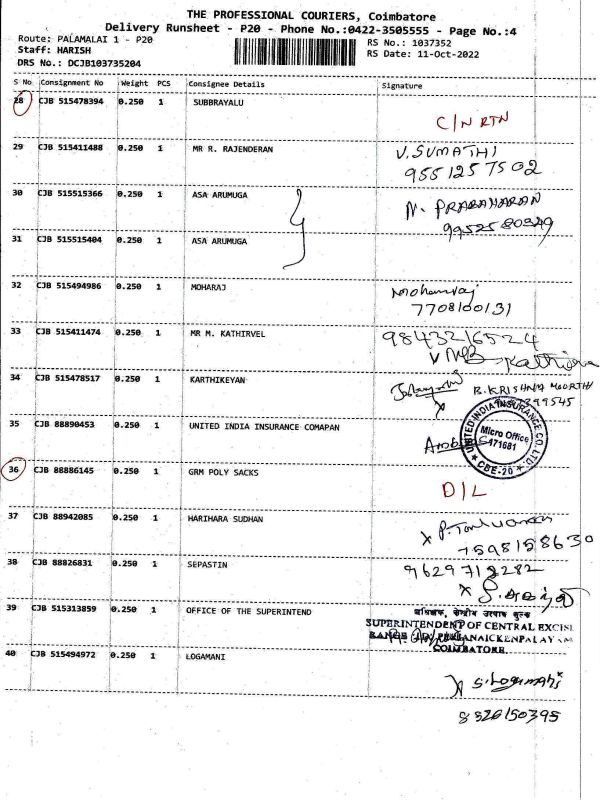 THE PROFESSIONAL COURIERS, Coimbatore
Delivery Runsheet - P20 - Phone No.:0422-3505555 - Page No.:4
Route: PALAMALAI 1 - P20
RS No.: 1037352
Staff: HARISH
RS Date: 11-Oct-2022
DRS No.: DCJB103735204
S No Consignment No Weight PCS Consignee Details Signature
28 CJB 515478394 0.250 1 SUBBRAYALU
C/N RTN
29 CJB 515411488 0.250 1 MR R. RAJENDERAN V.SUMATHI
9551257502
30 CJB 515515366 0.250 1 ASA ARUMUGA N. PRABAHARAN
9952580949
31 CJB 515515404 0.250 1 ASA ARUMUGA
32 CJB 515494986 0.250 1 MOHARAJ Mohanraj
7708100131
33 CJB 515411474 0.250 1 MR M. KATHIRVEL 9843216524
34 CJB 515478517 0.250 1 KARTHIKEYAN R.KRISHNA MOORTHY
35 CJB 88890453 0.250 1 UNITED INDIA INSURANCE COMAPAN
UNITED INDIA INSURANCE CO. LTD.
Micro Office
171681
CBE-20
36 CJB 88886145 0.250 1 GRM POLY SACKS
D/L
37 CJB 88942085 0.250 1 HARIHARA SUDHAN
7598158630
38 CJB 88826831 0.250 1 SEPASTIN 9629712282
39 CJB 515313859 0.250 1 OFFICE OF THE SUPERINTEND
अधीक्षक, केन्द्रीय उत्पाद शुल्क
SUPERINTENDENT OF CENTRAL EXCISE
COIMBATORE.
40 CJB 515494972 0.250 1 LOGAMANI
S.Logamani
8526150395